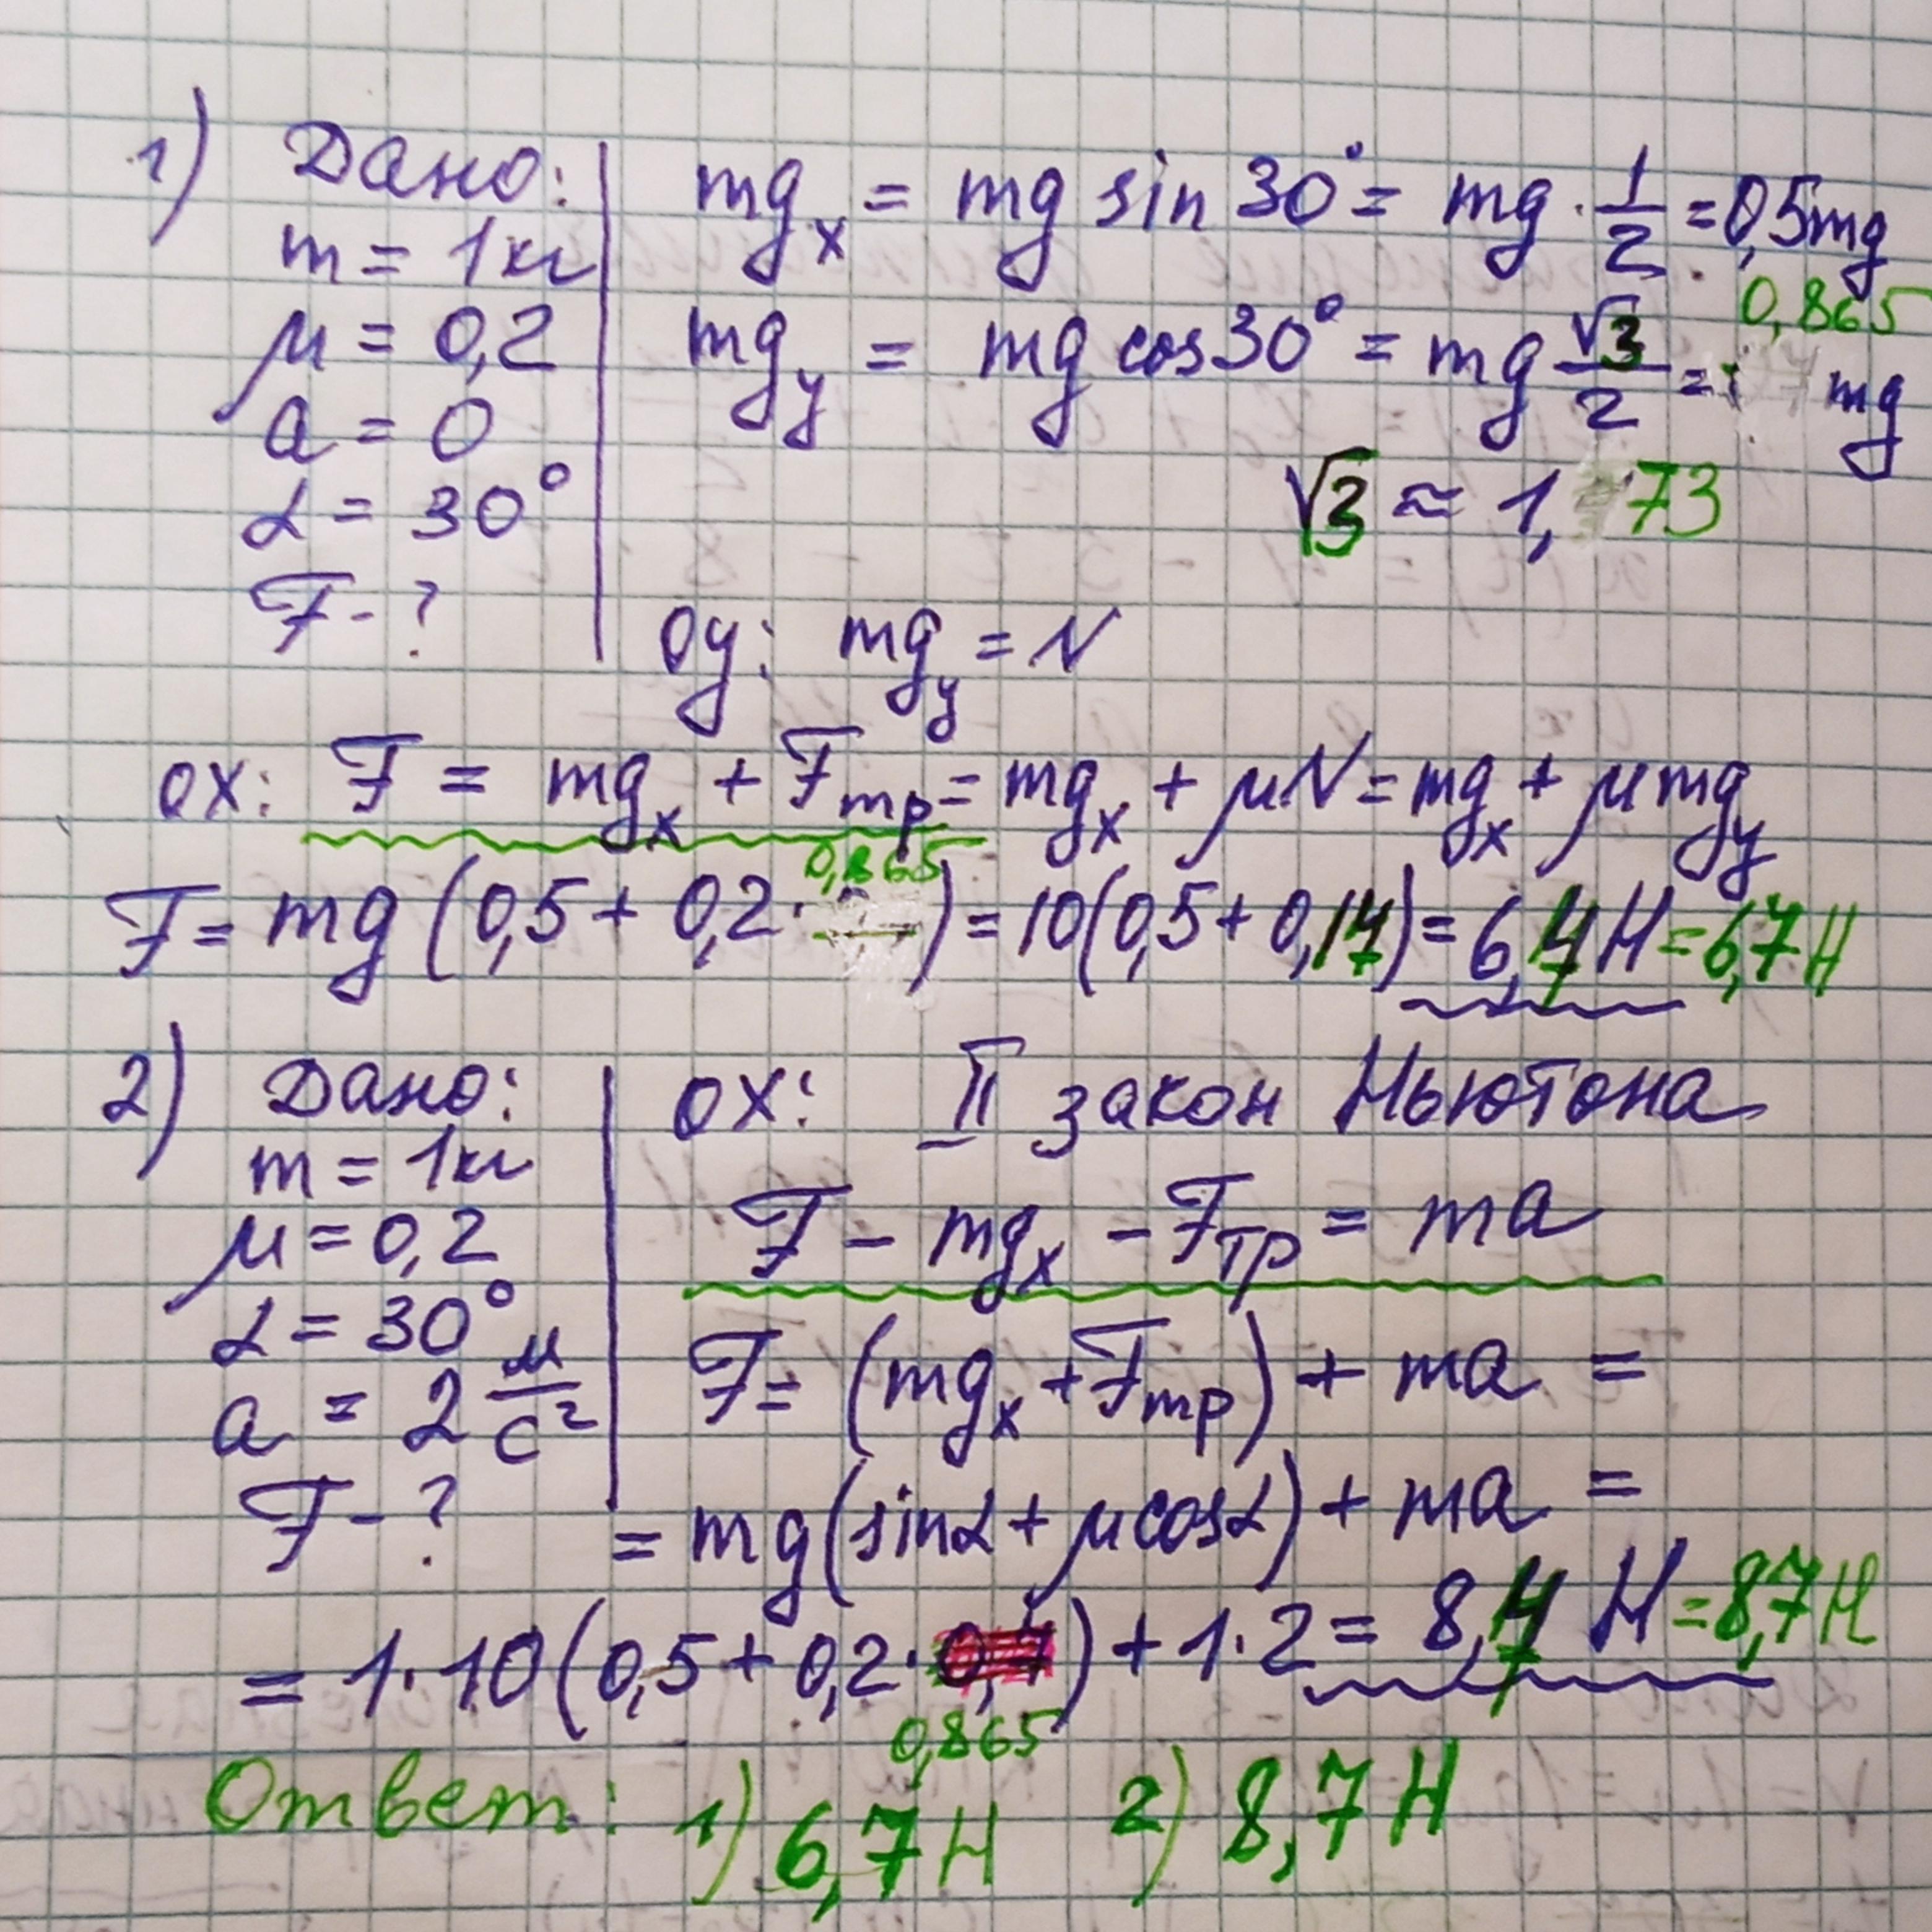 1) Дано:
m = 1 кг
μ = 0,2
a = 0
α = 30°
F - ?
mgₓ = mg sin 30° = mg · 1/2 = 0,5mg
mgᵧ = mg cos 30° = mg √3/2 = 0,865 mg
√3 ≈ 1,73
oy: mgᵧ = N
ox: F = mgₓ + Fтр = mgₓ + μN = mgₓ + μmgᵧ
F = mg (0,5 + 0,2 · 0,865) = 10(0,5 + 0,17) = 6,7 Н = 6,7 Н
2) Дано:
m = 1 кг
μ = 0,2
α = 30°
a = 2 м/с²
F - ?
ox: II закон Ньютона
F - mgₓ - Fтр = ma
F = (mgₓ + Fтр) + ma =
= mg(sinα + μcosα) + ma =
= 1·10(0,5 + 0,2 · 0,865) + 1·2 = 8,7 Н = 8,7 Н
Ответ: 1) 6,7 Н 2) 8,7 Н